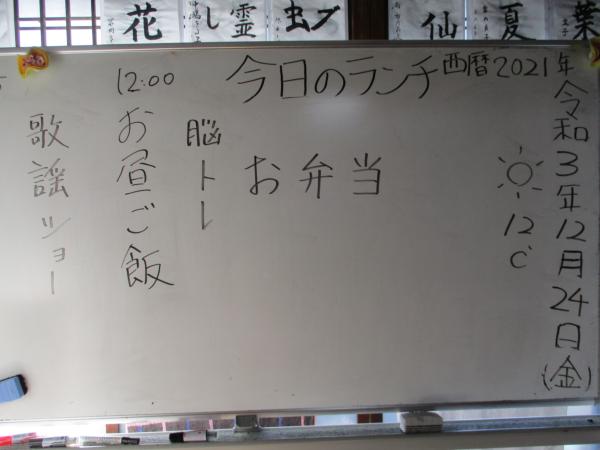 西暦2021年
令和3年12月24日(金)
12℃
今日のランチ
お弁当
脳トレ
12:00
お昼ご飯
歌謡ショー
葉
夏
仙
ブ
虫
霊
し
花